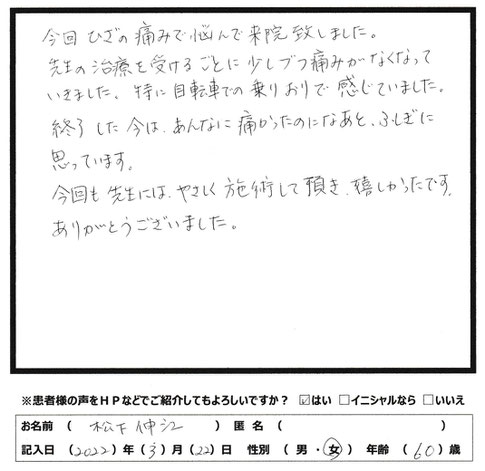 今回 ひざの痛みで悩んで来院致しました。
先生の治療を受けるごとに少しづつ痛みがなくなって
いきました。特に自転車での乗りおりで感じていました。
終了した今は、あんなに痛かったのになあと、ふしぎに
思っています。
今回も先生には、やさしく施術して頂き、嬉しかったです。
ありがとうございました。
※患者様の声をＨＰなどでご紹介してもよろしいですか？ ☑はい □イニシャルなら □いいえ
お名前 （ 松下伸江 ） 匿名（ ）
記入日（2022）年（3）月（22）日 性別（男・女）年齢（60）歳